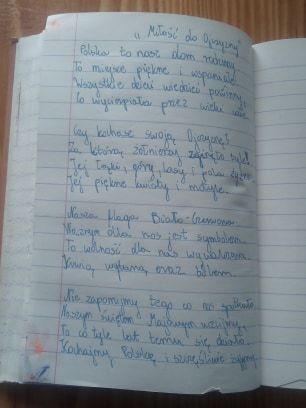 „Miłość do Ojczyzny”
Polska to nasz dom rodzinny
To miejsce piękne i wspaniałe
Wszystkie dzieci wiedzieć powinny,
To wycierpiała przez wieki
Czy kochasz swoją Ojczyznę?
Za którą żołnierzy zginęło tyle?
Jej łąki, góry, lasy i pola
Jej piękne kwiaty i motyle.
Nasza flaga Biało-Czerwona
Ważnym dla nas jest symbolem
To wolność dla nas wywalczona
Krwią, wytrwałą oraz bólem.
Nie zapomnijmy tego co nas spotkało
Naszym świętem Majowym uczcijmy,
To co tyle lat temu się działo
Kochajmy Polskę i szczęśliwie żyjmy